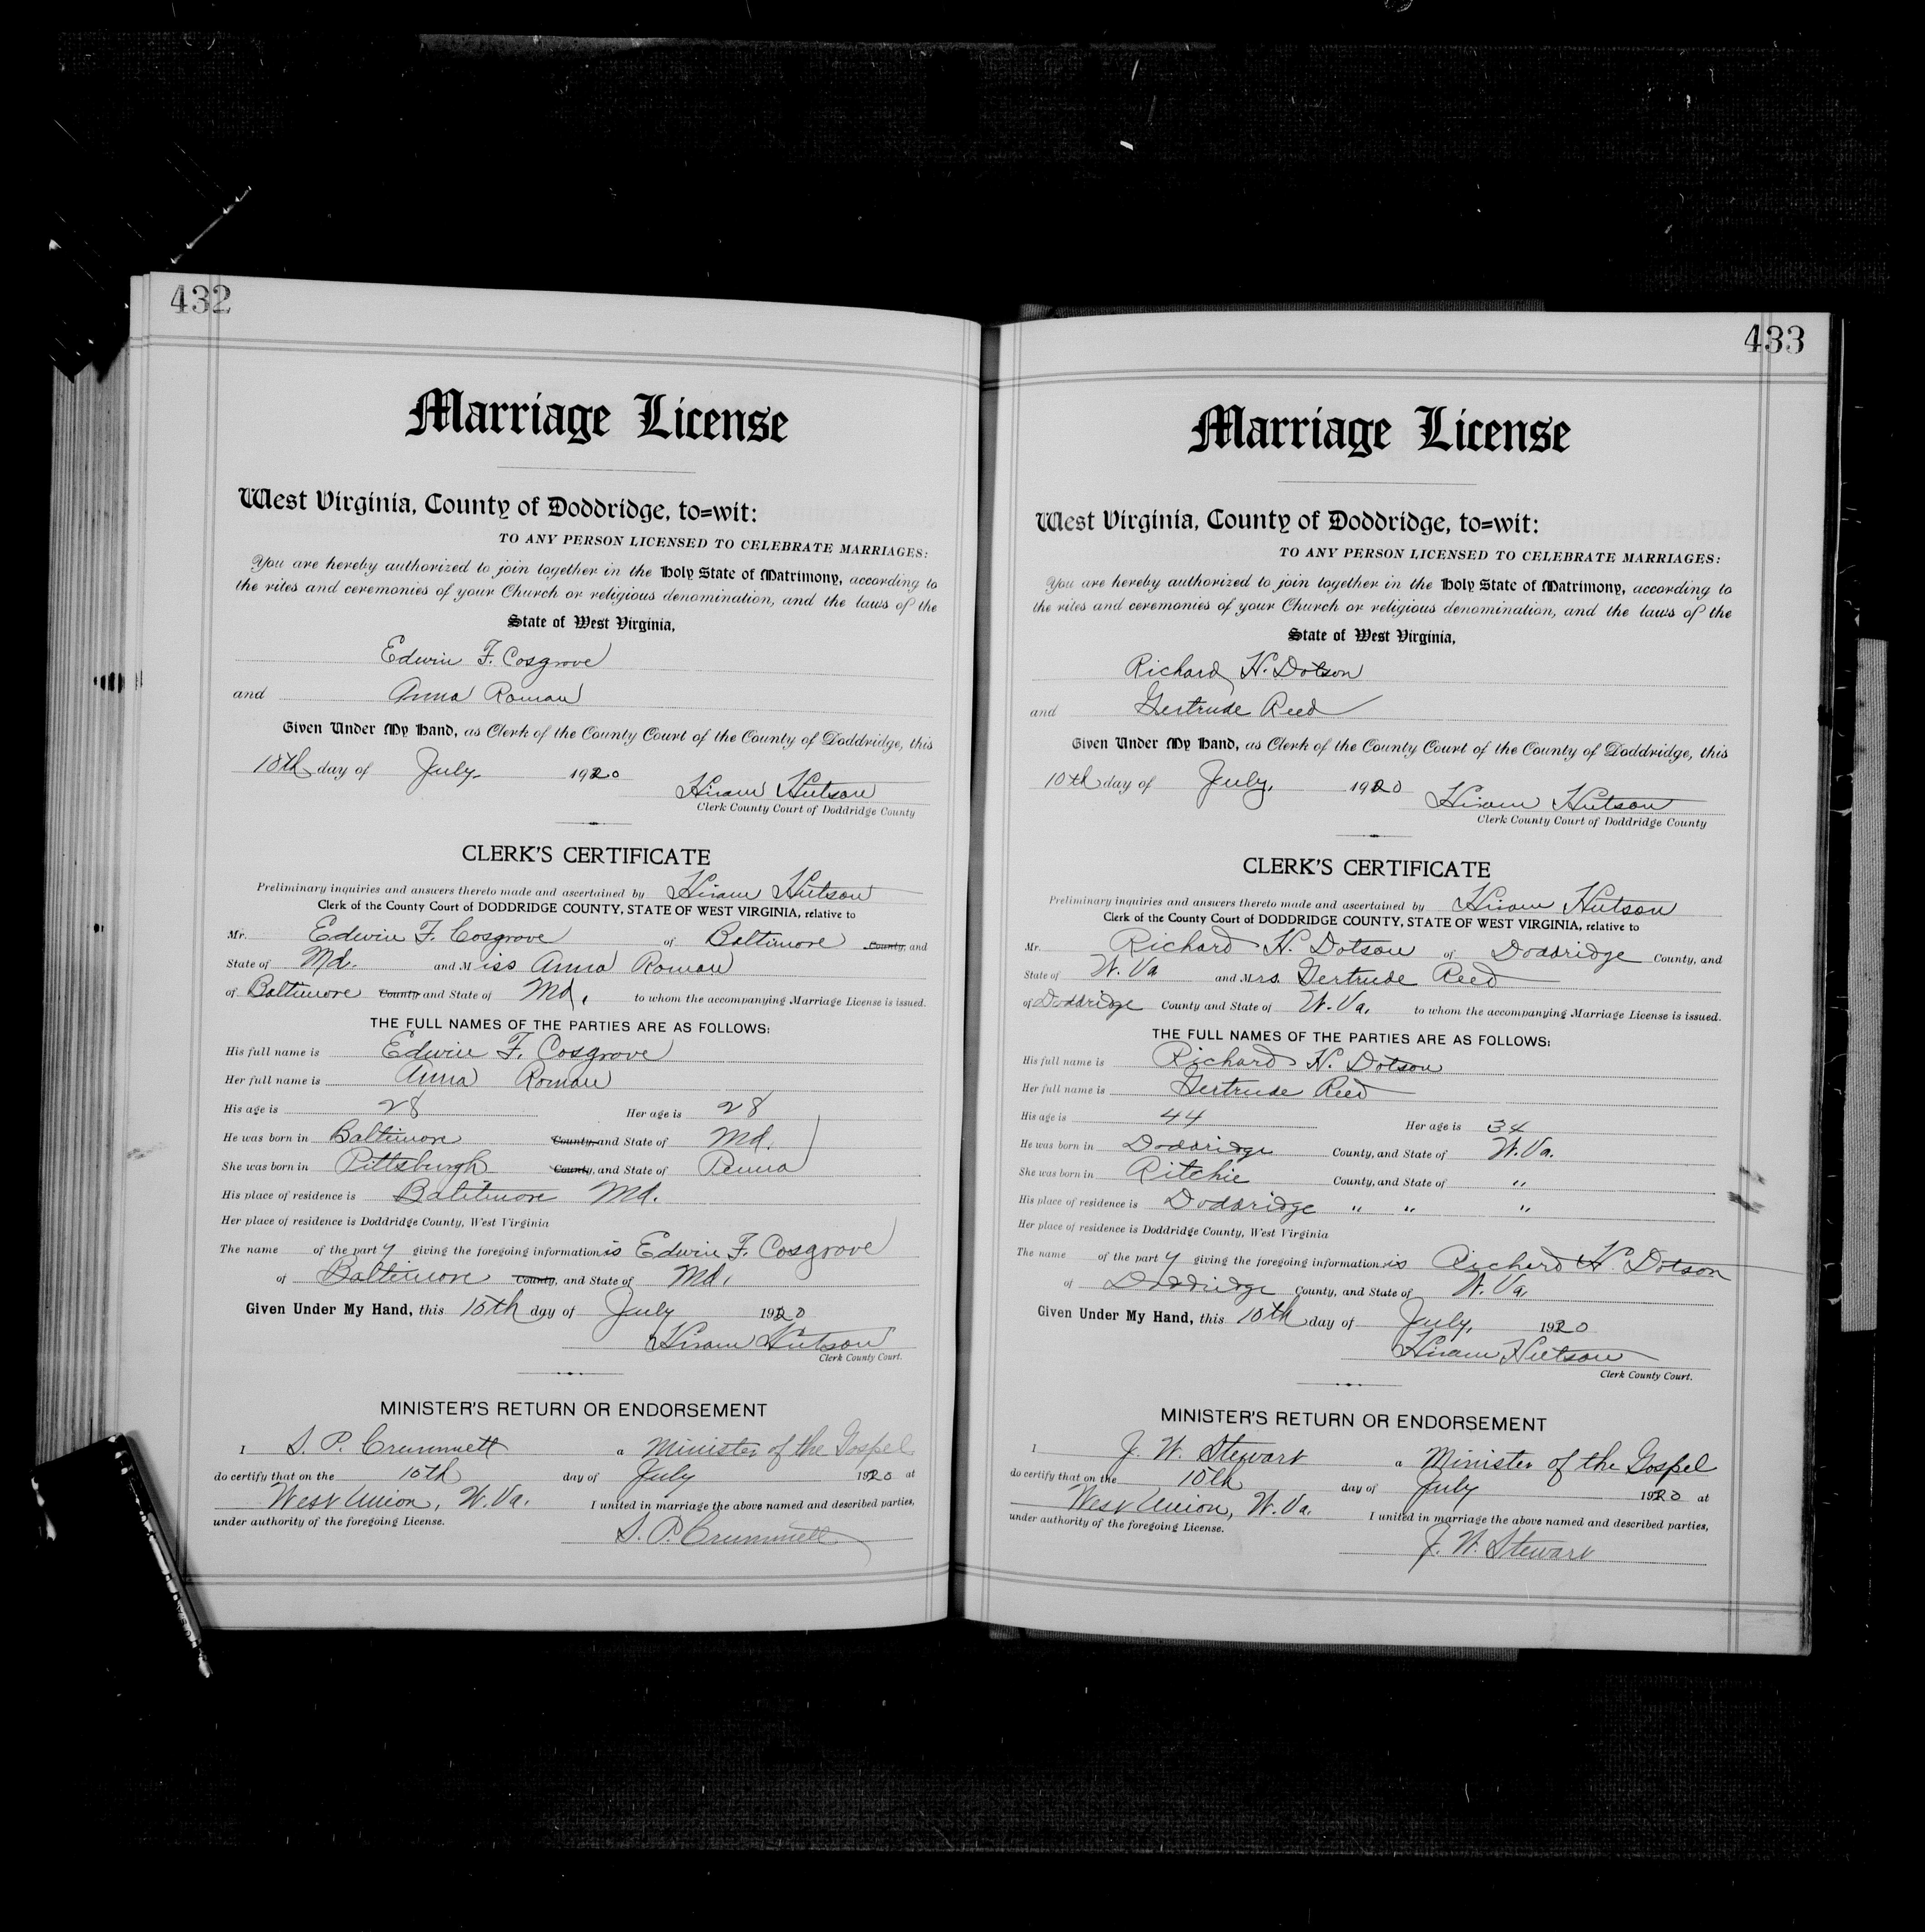 432
Marriage License
West Virginia, County of Doddridge, to=wit:
TO ANY PERSON LICENSED TO CELEBRATE MARRIAGES:
You are hereby authorized to join together in the Holy State of Matrimony, according to
the rites and ceremonies of your Church or religious denomination, and the laws of the
State of West Virginia,
Edwin F. Cosgrove
and Anna Roman
Given Under My Hand, as Clerk of the County Court of the County of Doddridge, this
10th day of July 1920
Hiram Hutson
Clerk County Court of Doddridge County
CLERK'S CERTIFICATE
Preliminary inquiries and answers thereto made and ascertained by Hiram Hutson
Clerk of the County Court of DODDRIDGE COUNTY, STATE OF WEST VIRGINIA, relative to
Mr. Edwin F. Cosgrove of Baltimore County, and
State of Md. and Miss Anna Roman
of Baltimore County and State of Md. to whom the accompanying Marriage License is issued.
THE FULL NAMES OF THE PARTIES ARE AS FOLLOWS:
His full name is Edwin F. Cosgrove
Her full name is Anna Roman
His age is 28 Her age is 28
He was born in Baltimore County, and State of Md.
She was born in Pittsburgh County, and State of Penna
His place of residence is Baltimore Md.
Her place of residence is Doddridge County, West Virginia
The name of the party giving the foregoing information is Edwin F. Cosgrove
of Baltimore County, and State of Md.
Given Under My Hand, this 10th day of July 1920
Hiram Hutson
Clerk County Court.
MINISTER'S RETURN OR ENDORSEMENT
I S. P. Crummett a Minister of the Gospel
do certify that on the 10th day of July 1920 at
West Union, W. Va. I united in marriage the above named and described parties,
under authority of the foregoing License.
S. P. Crummett
433
Marriage License
West Virginia, County of Doddridge, to=wit:
TO ANY PERSON LICENSED TO CELEBRATE MARRIAGES:
You are hereby authorized to join together in the Holy State of Matrimony, according to
the rites and ceremonies of your Church or religious denomination, and the laws of the
State of West Virginia,
Richard H. Dotson
and Gertrude Reed
Given Under My Hand, as Clerk of the County Court of the County of Doddridge, this
10th day of July, 1920
Hiram Hutson
Clerk County Court of Doddridge County
CLERK'S CERTIFICATE
Preliminary inquiries and answers thereto made and ascertained by Hiram Hutson
Clerk of the County Court of DODDRIDGE COUNTY, STATE OF WEST VIRGINIA, relative to
Mr. Richard H. Dotson of Doddridge County, and
State of W. Va and Mrs. Gertrude Reed
of Doddridge County and State of W. Va. to whom the accompanying Marriage License is issued.
THE FULL NAMES OF THE PARTIES ARE AS FOLLOWS:
His full name is Richard H. Dotson
Her full name is Gertrude Reed
His age is 44 Her age is 34
He was born in Doddridge County, and State of W. Va.
She was born in Ritchie County, and State of "
His place of residence is Doddridge " " "
Her place of residence is Doddridge County, West Virginia
The name of the party giving the foregoing information is Richard H. Dotson
of Doddridge County, and State of W. Va.
Given Under My Hand, this 10th day of July, 1920
Hiram Hutson
Clerk County Court.
MINISTER'S RETURN OR ENDORSEMENT
I J. W. Stewart a Minister of the Gospel
do certify that on the 10th day of July 1920 at
West Union, W. Va. I united in marriage the above named and described parties,
under authority of the foregoing License.
J. W. Stewart